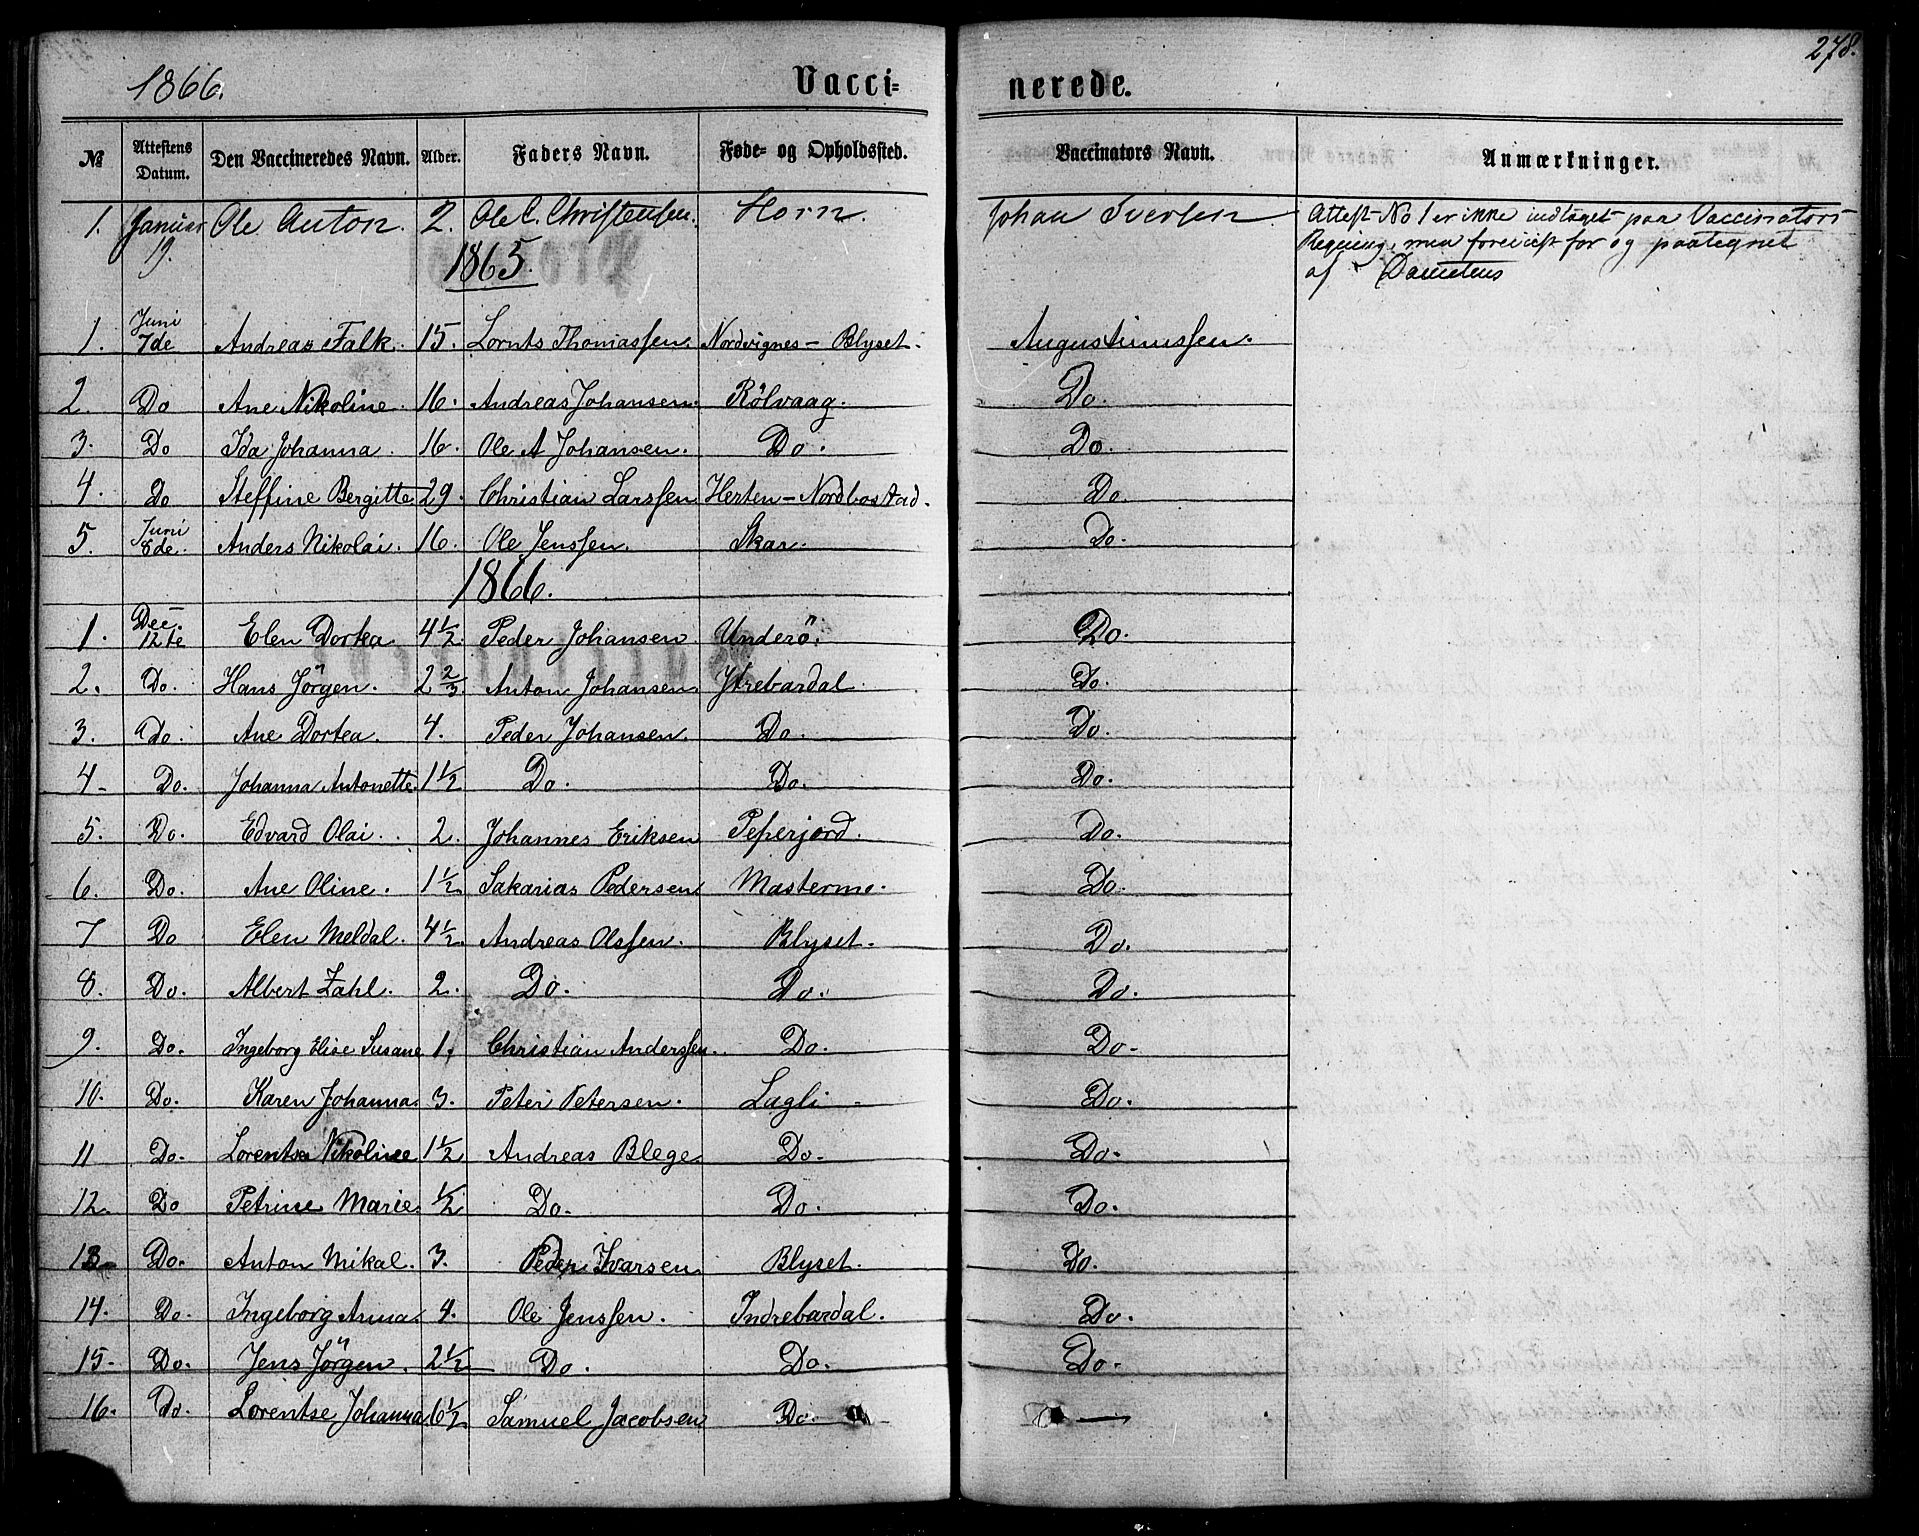 278.
1866. Vacci= nerede.
No Attestens Datum. Den Vaccineredes Navn. Alder. Faders Navn. Føde- og Opholdssted. Vaccinators Navn. Anmærkninger.
1. Januar 19. Ole Anton 2. Ole C. Christensen. Horn. Johan Iversen Attest No 1 er ikke indtaget paa Vaccinators
Regning, men foreviist for og paategnet
af
1865.
1. Juni 7de Andreas Falk. 15. Lornts Thomassen. Nordvignes - Blyset. Augustinussen.
2. Do Ane Nikoline. 16. Andreas Johansen. Rölvaag. Do.
3. Do Ida Johanna. 16. Ole A Johansen. Do. Do.
4. Do Steffine Bergitte 29. Christian Larssen Herten - Nordbostad. Do.
5. Juni 8de. Anders Nikolai. 16. Ole Jenssen. Skar. Do.
1866.
1. Dec. 12te Elen Dortea 4 1/2 Peder Johansen. Underö. Do.
2. Do. Hans Jörgen. 2 2/3. Anton Johansen Ytrebardal. Do.
3. Do. Ane Dortea. 4. Peder Johansen. Do. Do.
4- Do. Johanna Antonette 1 1/2 Do. Do. Do.
5. Do. Edvard Olai. 2. Johannes Eriksen Peperjord. Do.
6. Do. Ane Oline. 1 1/2 Sakarias Pedersen Mastermo. Do.
7 Do Elen Meldal. 4 1/2. Andreas Olssen. Blyset. Do.
8. Do. Albert Zahl. 2. Do. Do. Do.
9. Do. Ingeborg Elise Susane 1. Christian Anderssen. Do. Do-
10. Do. Karen Johanna. 3. Peter Petersen. Lagli - Do.
11 Do. Lorentse Nikoline 1 1/2 Andreas Blege. Do- Do-
12. Do Petrine Marie 1/2 Do. Do. Do.
13- Do. Anton Mikal. 3. Peder Ivarsen Blyset. Do.
14. Do. Ingeborg Anna 4. Ole Jenssen. Indrebardal. Do.
15- Do. Jens Jörgen. 2 1/2 Do. Do. Do-
16. Do. Lorentse Johanna 6 1/2 Samuel Jacobsen Do.